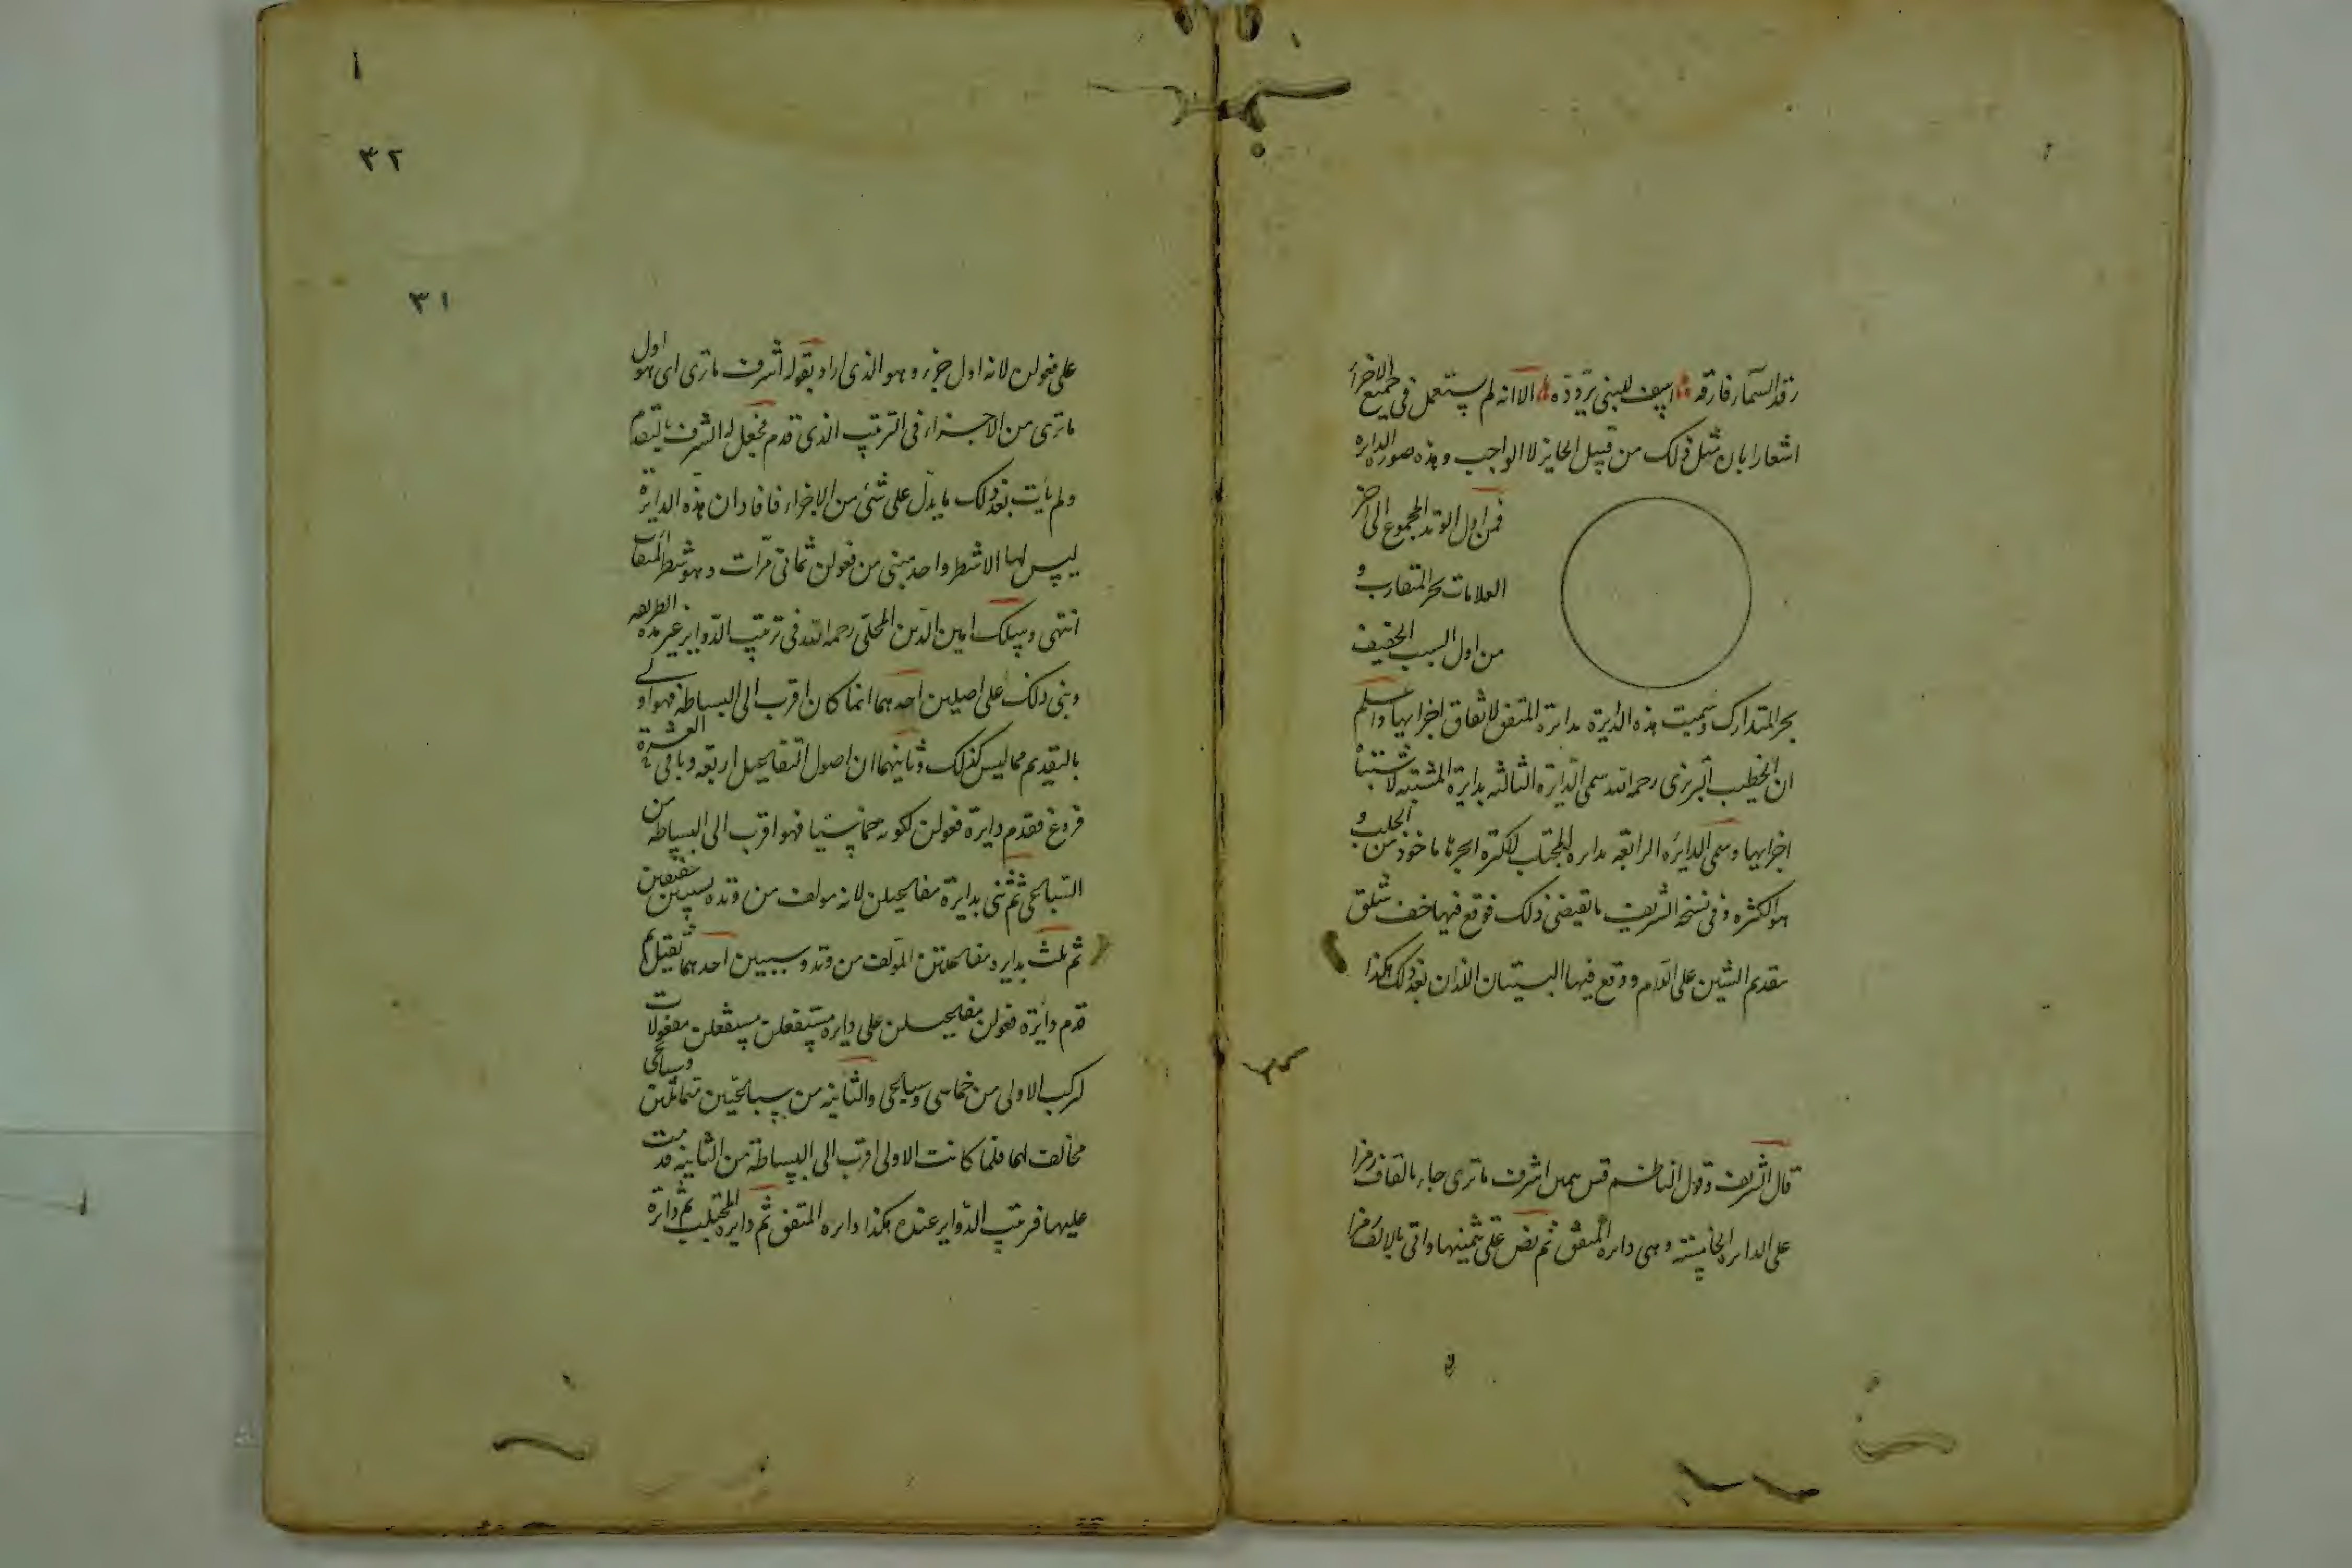 الا انه لم يستعمل في جميع الاجزاء
اشعارا بان مثل ذلك من قبيل الجايز لا الواجب وهذه صورة الدايرة
فمن اول الوتد المجموع الى آخر
العلامات بحر المتقارب و
من اول السبب الخفيف
بحر المتدارك وسميت هذه الدايرة بدائرة المتفق لاتفاق اجزايها واعلم
ان الخطيب التبريزي رحمه الله سمى الدايرة الثالثة بدايرة المشتبه لاشتباه
اجزايها وسمى الدايرة الرابعة بدايرة المجتلب لكثرة ابحرها ماخوذ من الجلب و
هو الكثرة وفي نسخة الشريف ما يقتضي ذلك فوقع فيها خف شلق
بتقديم الشين على اللام ووقع فيها البيتان اللذان بعد ذلك هكذا
قال الشريف وقول الناظم اشرف ما ترى جاء بالقاف رمزا
على الدايرة الخامسة وهي دايرة المتفق ثم نص على ثمنيها واتى بالالف رمزا
١
٣٢
٣١
على فعولن لانه اول جزء وهو الذي اراد بقوله اشرف ما ترى اى هو اول
ما ترى من الاجزاء في الترتيب الذي قدم فجعل له الشرف بالتقدم
ولم يأت بعد ذلك ما يدل على شئ من الاجزاء فافاد ان هذه الدايرة
ليس لها الا شطر واحد مبنى من فعولن ثماني مرّات وهو شطر المتقارب
انتهى وسلك امين الدين المحلى رحمه الله في ترتيب الدواير غير هذه الطريقة
وبنى ذلك على اصلين احدهما انما كان اقرب الى البساطة فهو اولى
بالتقديم مما ليس كذلك وثانيهما ان اصول التفاعيل اربعة وباقى العشرة
فروع فقدم دايرة فعولن لكونه خماسيا فهو اقرب الى البساطة من
السباعي ثم ثنى بدايرة مفاعيلن لانه مولف من وتد وسببين خفيفين
ثم ثلث بدايرة مفاعلتن المؤلف من وتد وسببين احدهما ثقيل ثم
قدم دائرة فعولن مفاعيلن على دايرة مستفعلن مستفعلن مفعولات
لتركب الاولى من خماسي وسباعي والثانية من سباعيين متماثلين وسباعي
مخالف لهما فلما كانت الاولى اقرب الى البساطة من الثانية قدمت
عليها فرتب الدواير عنده هكذا دايرة المتفق ثم دايرة المجتلب ثم دائرة